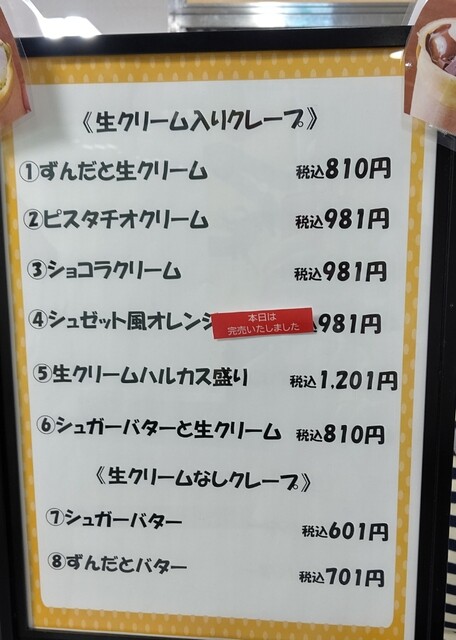 《生クリーム入りクレープ》
①ずんだと生クリーム 税込810円
②ピスタチオクリーム 税込981円
③ショコラクリーム 税込981円
④シュゼット風オレンジ 981円
本日は
完売いたしました
⑤生クリームハルカス盛り 税込1,201円
⑥シュガーバターと生クリーム 税込810円
《生クリームなしクレープ》
⑦シュガーバター 税込601円
⑧ずんだとバター 税込701円